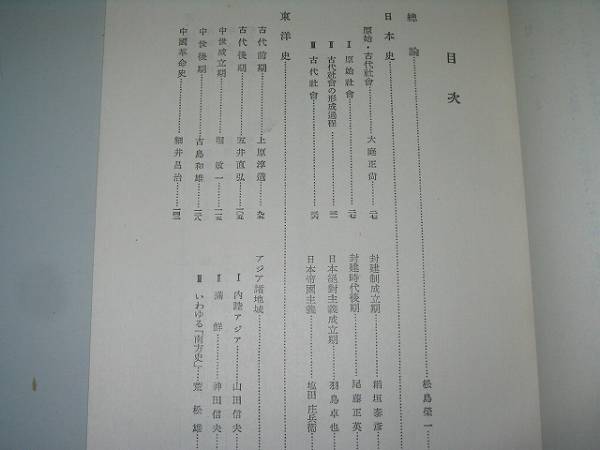 目次
總論……松島榮一
日本史……
原始・古代社會……大庭正尙……二七
Ⅰ 原始社會……二七
Ⅱ 古代社會の形成過程……
Ⅲ 古代社會……
封建制成立期……稻垣泰彥
封建時代後期……尾藤正英
日本絕對主義成立期……羽鳥卓也
日本帝國主義……塩田庄兵衞
東洋史……
古代前期……上原淳道……九五
古代後期……五井直弘……一〇五
中世成立期……堀敏一……一一五
中世後期……古島和雄……一二八
中國革命史……細井昌治……一四三
アジア諸地域……
Ⅰ 內陸アジア……山田信夫
Ⅱ 滿鮮……神田信夫
Ⅲ いわゆる「南方史」……荒松雄